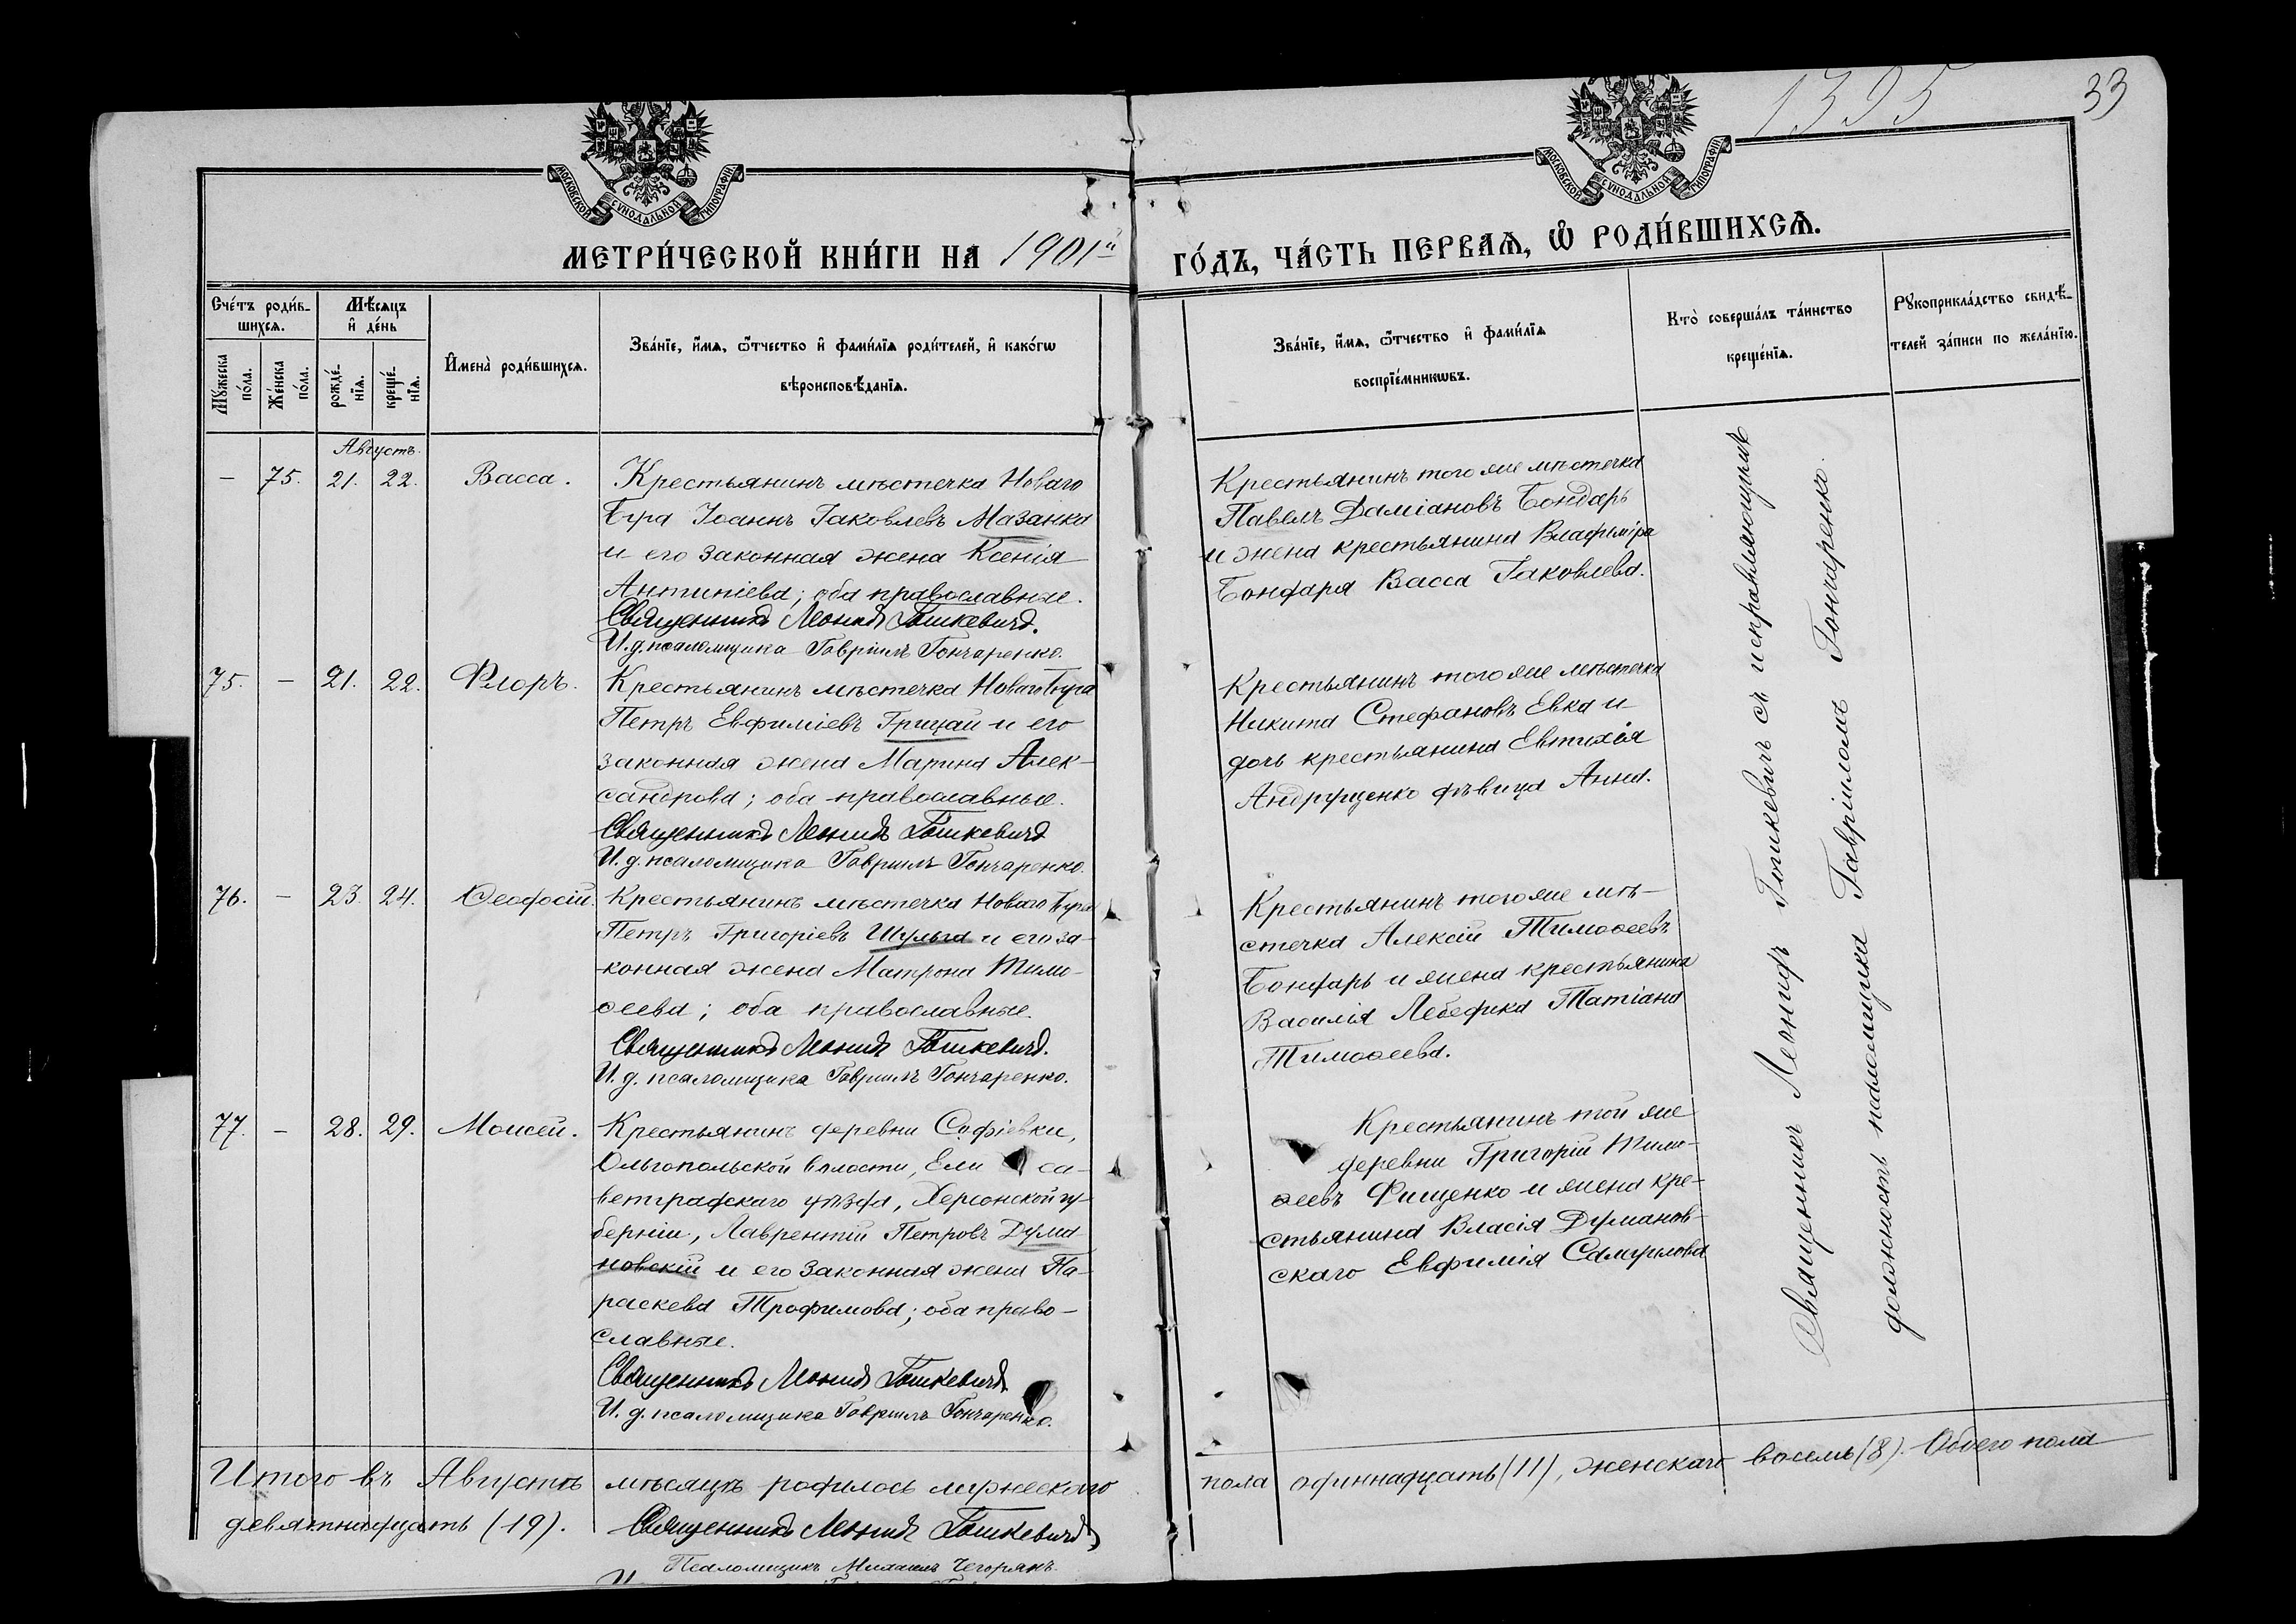 1395
33
МОСКОВСКОЙ СУНОДАЛЬНОЙ ТИПОГРАФІИ
МОСКОВСКОЙ СУНОДАЛЬНОЙ ТИПОГРАФІИ
МЕТРИ́ЧЕСКОЙ КНИ́ГИ НА 1901й
ГО́ДЪ, ЧА́СТЬ ПЕРВАѦ, Ѡ҆ РОДИ́ВШИХСѦ.
Сче́тъ роди́в-
шихсѧ.
Мꙋ́жеска
по́ла.
Же́нска
по́ла.
Мѣ́сѧцъ
и҆ де́нь
рожде́-
нїѧ.
креще́-
нїѧ.
И҆мена̀ роди́вшихсѧ.
Зва́нїе, и҆́мѧ, ѻ҆́тчество и҆ фами́лїѧ роди́телей, и҆ како́гѡ
вѣроисповѣ́данїѧ.
Зва́нїе, и҆́мѧ, ѻ҆́тчество и҆ фами́лїѧ
воспрїе́мникѡвъ.
Кто̀ соверша́лъ та́инство
креще́нїѧ.
Рꙋкоприкла́дство свидѣ́-
телей за́писи по жела́нїю.
Августъ.
— 75. 21. 22. Васса.
Крестьянинъ мѣстечка Новаго
Буга Іоаннъ Іаковлевъ Мазанка
и его законная жена Ксенія
Антипіева; оба православные.
Священникъ Леонидъ Гошкевичъ.
И. д. псаломщика Гавріилъ Гончаренко.
Крестьянинъ того же мѣстечка
Павелъ Даміановъ Бондарь
и жена крестьянина Владиміра
Бондаря Васса Іаковлева.
75. — 21. 22. Флоръ.
Крестьянинъ мѣстечка Новаго Буга
Петръ Евфиміевъ Грицай и его
законная жена Марина Алек-
сандрова; оба православные.
Священникъ Леонидъ Гошкевичъ
И. д. псаломщика Гавріилъ Гончаренко.
Крестьянинъ того же мѣстечка
Никита Стефановъ Евка и
дочь крестьянина Евтихія
Андрущенко дѣвица Анна.
76. — 23. 24. Ѳеодосій.
Крестьянинъ мѣстечка Новаго Буга
Петръ Григоріевъ Шульга и его за-
конная жена Матрона Тимо-
ѳеева; оба православные.
Священникъ Леонидъ Гошкевичъ.
И. д. псаломщика Гавріилъ Гончаренко.
Крестьянинъ того же мѣ-
стечка Алексій Тимоѳеевъ
Бондарь и жена крестьянина
Василія Лебедика Татіана
Тимоѳеева.
77. — 28. 29. Моисей.
Крестьянинъ деревни Софіевки,
Ольгопольской волости, Ели са-
ветградскаго уѣзда, Херсонской гу-
берніи, Лаврентій Петровъ Дума-
новскій и его законная жена Па-
раскева Трофимова; оба право-
славные.
Священникъ Леонидъ Гошкевичъ
И. д. псаломщика Гавріилъ Гончаренко.
Крестьянинъ той же
деревни Григорій Тимо-
ѳеевъ Фищенко и жена кре-
стьянина Власія Думанов-
скаго Евфимія Самуилова
Священникъ Леонидъ Гошкевичъ съ исправляющимъ
должность псаломщика Гавріиломъ Гончаренко.
Итого въ Августѣ мѣсяцѣ родилось мужескаго пола одиннадцать (11), женскаго восемь (8). Обоего пола
девятнадцать (19). Священникъ Леонидъ Гошкевичъ
Псаломщикъ Михаилъ